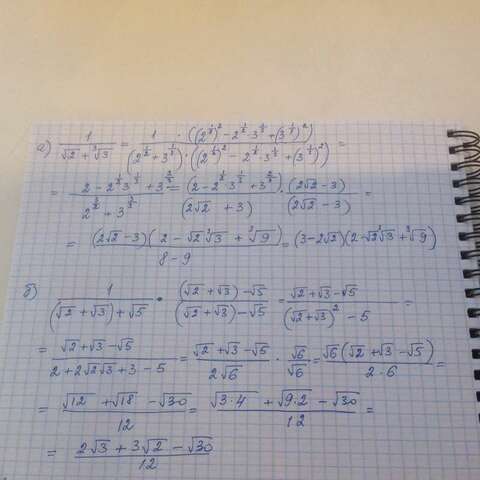 а) 1/(√2 + ∛3) = 1 · ((2^(1/2))² − 2^(1/2)·3^(1/3) + (3^(1/3))²)/((2^(1/2) + 3^(1/3))·((2^(1/2))² − 2^(1/2)·3^(1/3) + (3^(1/3))²)) =
= (2 − 2^(1/2)3^(1/3) + 3^(2/3))/(2^(3/2) + 3^(3/3)) = (2 − 2^(1/2)3^(1/3) + 3^(2/3))/(2√2 + 3) · (2√2 − 3)/(2√2 − 3) =
= (2√2 − 3)(2 − √2∛3 + ∛9)/(8 − 9) = (3 − 2√2)(2 − √2∛3 + ∛9)
б) 1/((√2 + √3) + √5) · ((√2 + √3) − √5)/((√2 + √3) − √5) = (√2 + √3 − √5)/((√2 + √3)² − 5) =
= (√2 + √3 − √5)/(2 + 2√2√3 + 3 − 5) = (√2 + √3 − √5)/(2√6) · √6/√6 = √6(√2 + √3 − √5)/(2·6) =
= (√12 + √18 − √30)/12 = (√3·4 + √9·2 − √30)/12 =
= (2√3 + 3√2 − √30)/12